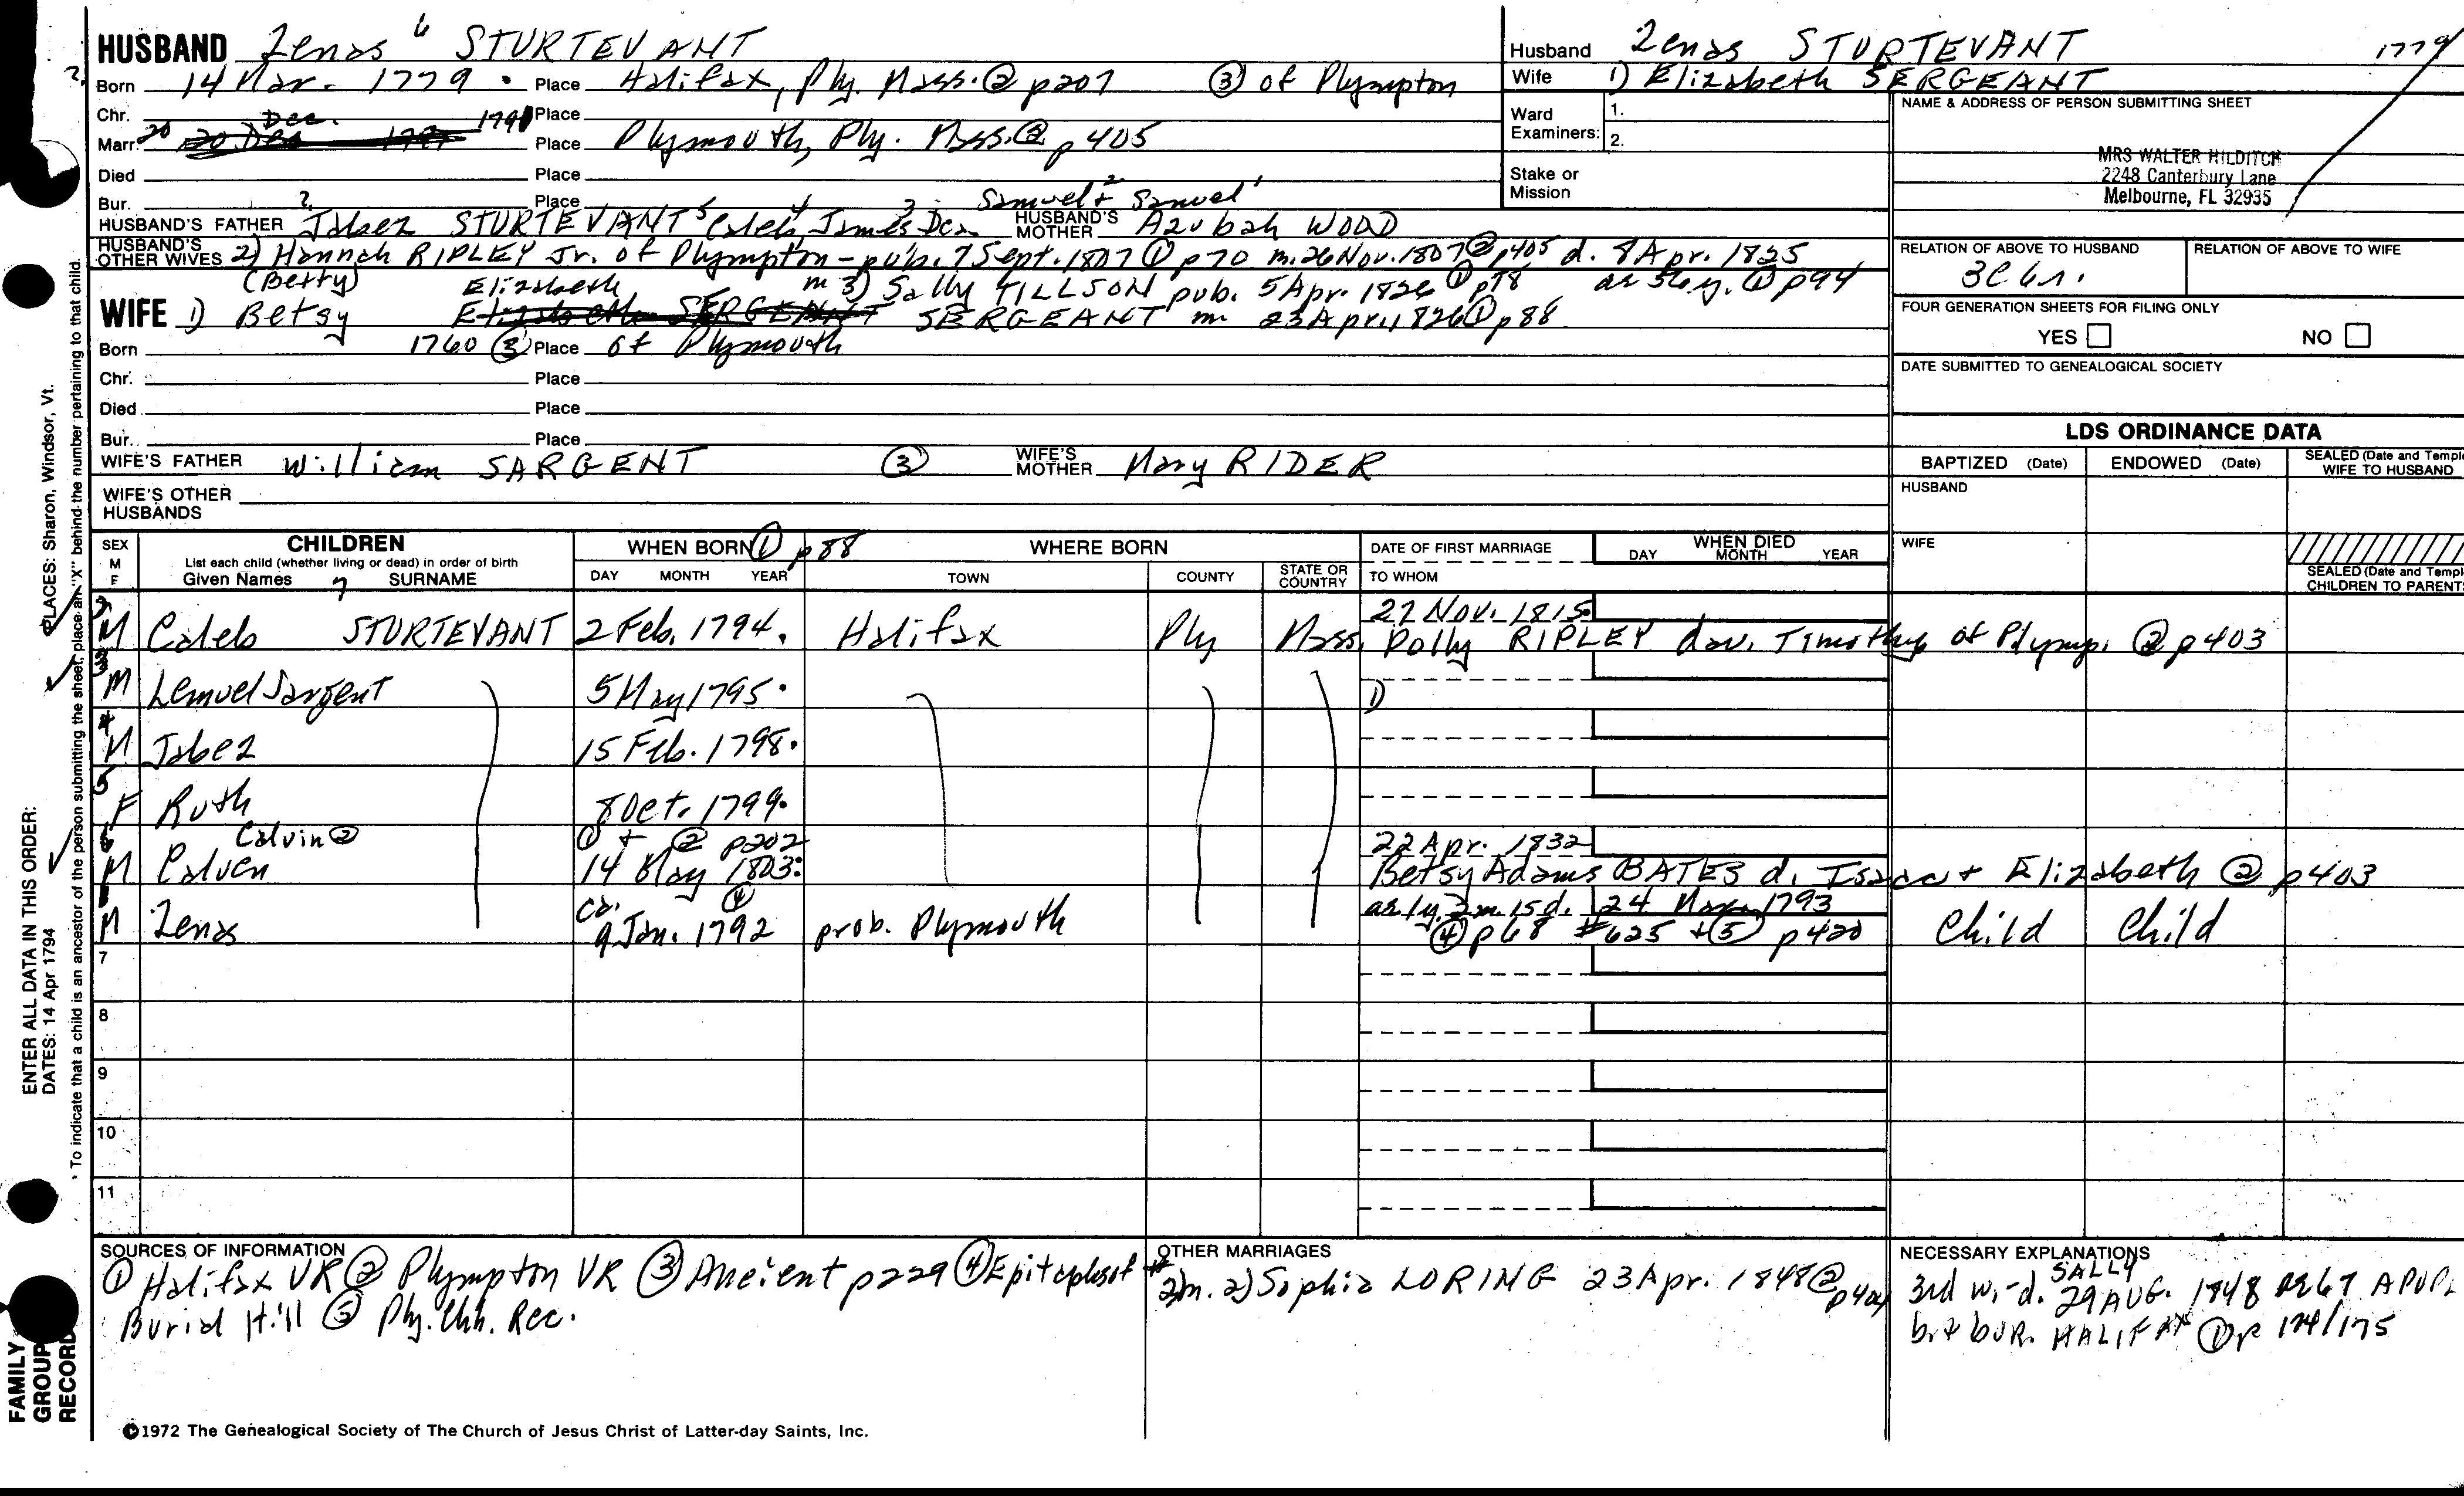 HUSBAND Zenas 6 STURTEVANT
Born 14 Mar. 1779 Place Halifax, Ply. Mass. ② p207 ③ of Plympton
Chr. Place
Marr. 20 Dec. 1791 Place Plymouth, Ply. Mass. ② p405
Died Place
Bur. Place
HUSBAND'S FATHER ? Jabez STURTEVANT 5 Caleb 4 James Dea. 3 Samuel 2 + Samuel 1 HUSBAND'S MOTHER Azubah WOOD
HUSBAND'S OTHER WIVES 2) Hannah RIPLEY Jr. of Plympton - pub. 7 Sept. 1807 ① p70 m. 26 Nov. 1807 ② p405 d. 8 Apr. 1825
(Betty) Elizabeth m 3) Sally TILLSON pub. 5 Apr. 1826 ① p78 ae 56 y. ① p94
WIFE 1) Betsy Elizabeth SERGEANT SERGEANT m 23 Apr. 1826 ① p88
Born 1760 ③ Place of Plymouth
Chr. Place
Died Place
Bur. Place
WIFE'S FATHER William SARGENT ③ WIFE'S MOTHER Mary RIDER
WIFE'S OTHER HUSBANDS
Husband Zenas STURTEVANT 1779
Wife 1) Elizabeth SERGEANT
Ward Examiners: 1.
2.
Stake or Mission
NAME & ADDRESS OF PERSON SUBMITTING SHEET
MRS WALTER HILDITCH
2248 Canterbury Lane
Melbourne, FL 32935
RELATION OF ABOVE TO HUSBAND RELATION OF ABOVE TO WIFE
FOUR GENERATION SHEETS FOR FILING ONLY
YES NO
DATE SUBMITTED TO GENEALOGICAL SOCIETY
LDS ORDINANCE DATA
BAPTIZED (Date) ENDOWED (Date) SEALED (Date and Templ
WIFE TO HUSBAND
HUSBAND
WIFE
SEALED (Date and Templ
CHILDREN TO PARENTS
SEX M F CHILDREN WHEN BORN ① p88 WHERE BORN DATE OF FIRST MARRIAGE WHEN DIED
List each child (whether living or dead) in order of birth
Given Names 7 SURNAME DAY MONTH YEAR TOWN COUNTY STATE OR COUNTRY TO WHOM DAY MONTH YEAR
27 NOV. 1815
2 M Caleb STURTEVANT 2 Feb. 1794. Halifax Ply Mass. Polly RIPLEY dau. Timothy of Plymp. ② p403
3 M Lemuel Sargent 5 May 1795. 1)
4 M Jabez 15 Feb. 1798.
5 F Ruth 8 Oct. 1799.
Calvin ② ① + ② p202 22 Apr. 1832
6 M Calven 14 May 1803. Betsy Adams BATES d. Isaac + Elizabeth ② p403
ca. ④ ae 1y. 2m. 15d. 24 Mar. 1793
1 M Zenas 9 Jan. 1792 prob. Plymouth ④ p68 #625 + ⑤ p420 Child Child
7
8
9
10
11
SOURCES OF INFORMATION
① Halifax VR ② Plympton VR ③ Ancient p229 ④ Epitaphs of
Burial Hill ⑤ Ply. Chh. Rec.
OTHER MARRIAGES
m. 2) Sophia LORING 23 Apr. 1848 ② p404
NECESSARY EXPLANATIONS
3rd w. - d. SALLY 29 AUG. 1848 AE 67 APOPL
b. + bur. HALIFAX ① p 174/175
©1972 The Genealogical Society of The Church of Jesus Christ of Latter-day Saints, Inc.
FAMILY GROUP RECORD
ENTER ALL DATA IN THIS ORDER:
DATES: 14 Apr 1794 PLACES: Sharon, Windsor, Vt.
To indicate that a child is an ancestor of the person submitting the sheet, place an "X" behind the number pertaining to that child.